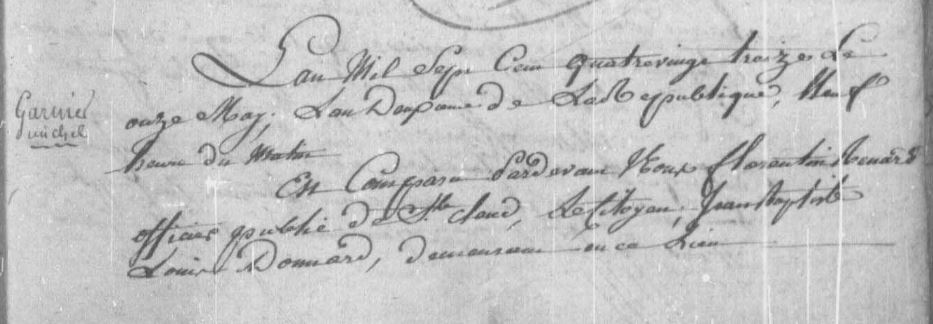 Lan Mil Sept Cent quatrevingt traize Le
Garnier
michel
onze May, Lan Deuxieme de La Republique, Neuf
heure du matin
Est Comparu Pardevant Nous florentin Renard
officier publié de St cloud, Le Citoyen, Jean Baptiste
Louis Donnard, demeurant en ce Lieu